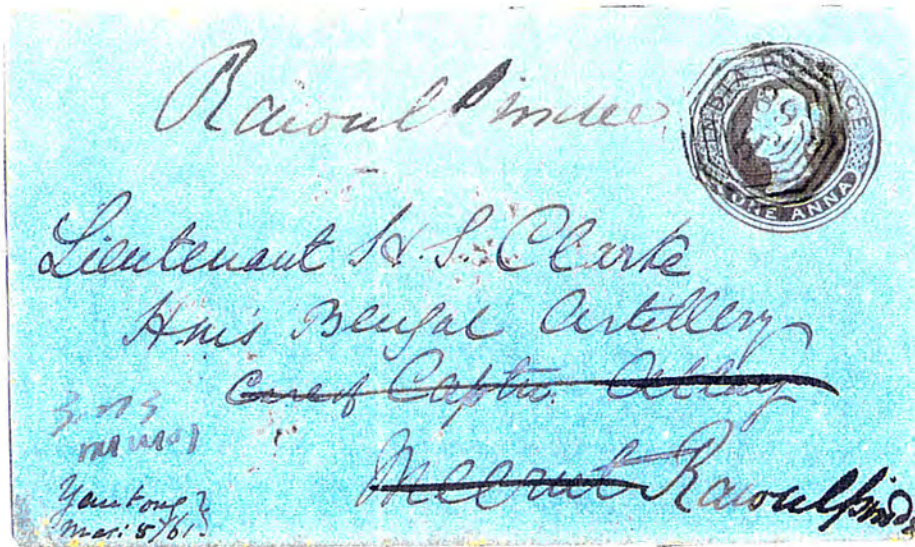 Rawul Pindee
INDIA POSTAGE
ONE ANNA
Lieutenant H. S. Clarke
Hm's Bengal Artillery
care of Captn.
Meerut Rawulpindee
Mar: 5/61